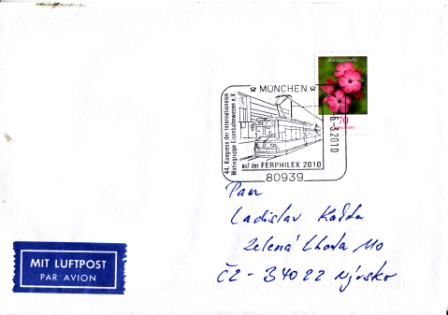 Kartäusernelke
70
MÜNCHEN
44. Kongress der Internationalen
Motivgruppe Eisenbahnwesen e.V.
auf der FERPHILEX 2010
80939
6.3.2010
Pan
Ladislav
Zelená Lhota 110
CZ - 34022 Nýrsko
MIT LUFTPOST
PAR AVION